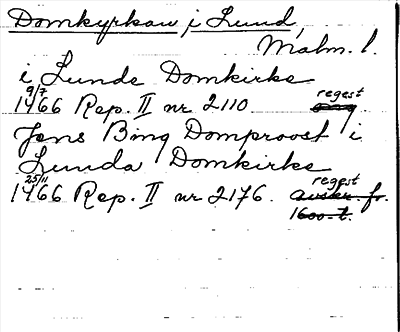 Domkyrkan i Lund,
Malm. l.
i Lunde Domkirke
9/7
1466 Rep. II nr 2110 regest
Jens Bing Domproost i
Lunda Domkirke
25/11
1466 Rep. II nr 2176. regest
avskr. fr.
1600-t.